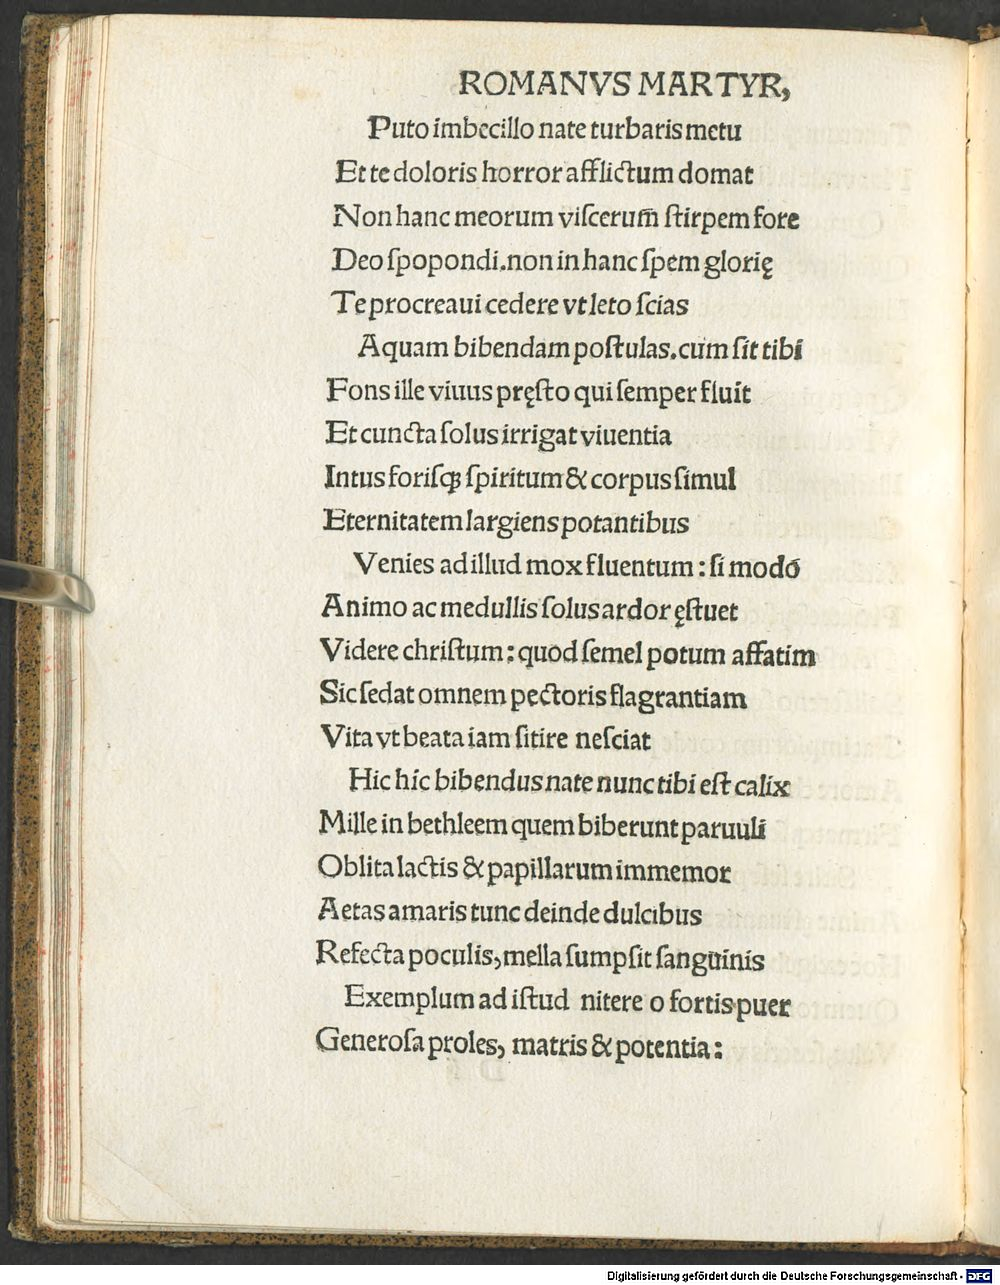 ROMANVS MARTYR,
Puto imbecillo nate turbaris metu
Et te doloris horror afflictum domat
Non hanc meorum viſcerum̃ ſtirpem fore
Deo ſpopondi.non in hanc ſpem glorię
Te procreaui cedere vt leto ſcias
Aquam bibendam poſtulas.cum ſit tibi
Fons ille viuus pręſto qui ſemper fluit
Et cuncta ſolus irrigat viuentia
Intus foriſqꝫ ſpiritum & corpus ſimul
Eternitatem largiens potantibus
Venies ad illud mox fluentum : ſi modo
Animo ac medullis ſolus ardor ęſtuet
Videre chriſtum : quod ſemel potum affatim
Sic ſedat omnem pectoris flagrantiam
Vita vt beata iam ſitire neſciat
Hic hic bibendus nate nunc tibi eſt calix
Mille in bethleem quem biberunt paruuli
Oblita lactis & papillarum immemor
Aetas amaris tunc deinde dulcibus
Refecta poculis, mella ſumpſit ſanguinis
Exemplum ad iſtud nitere o fortis puer
Generoſa proles, matris & potentia :
Digitalisierung gefördert durch die Deutsche Forschungsgemeinschaft - DFG